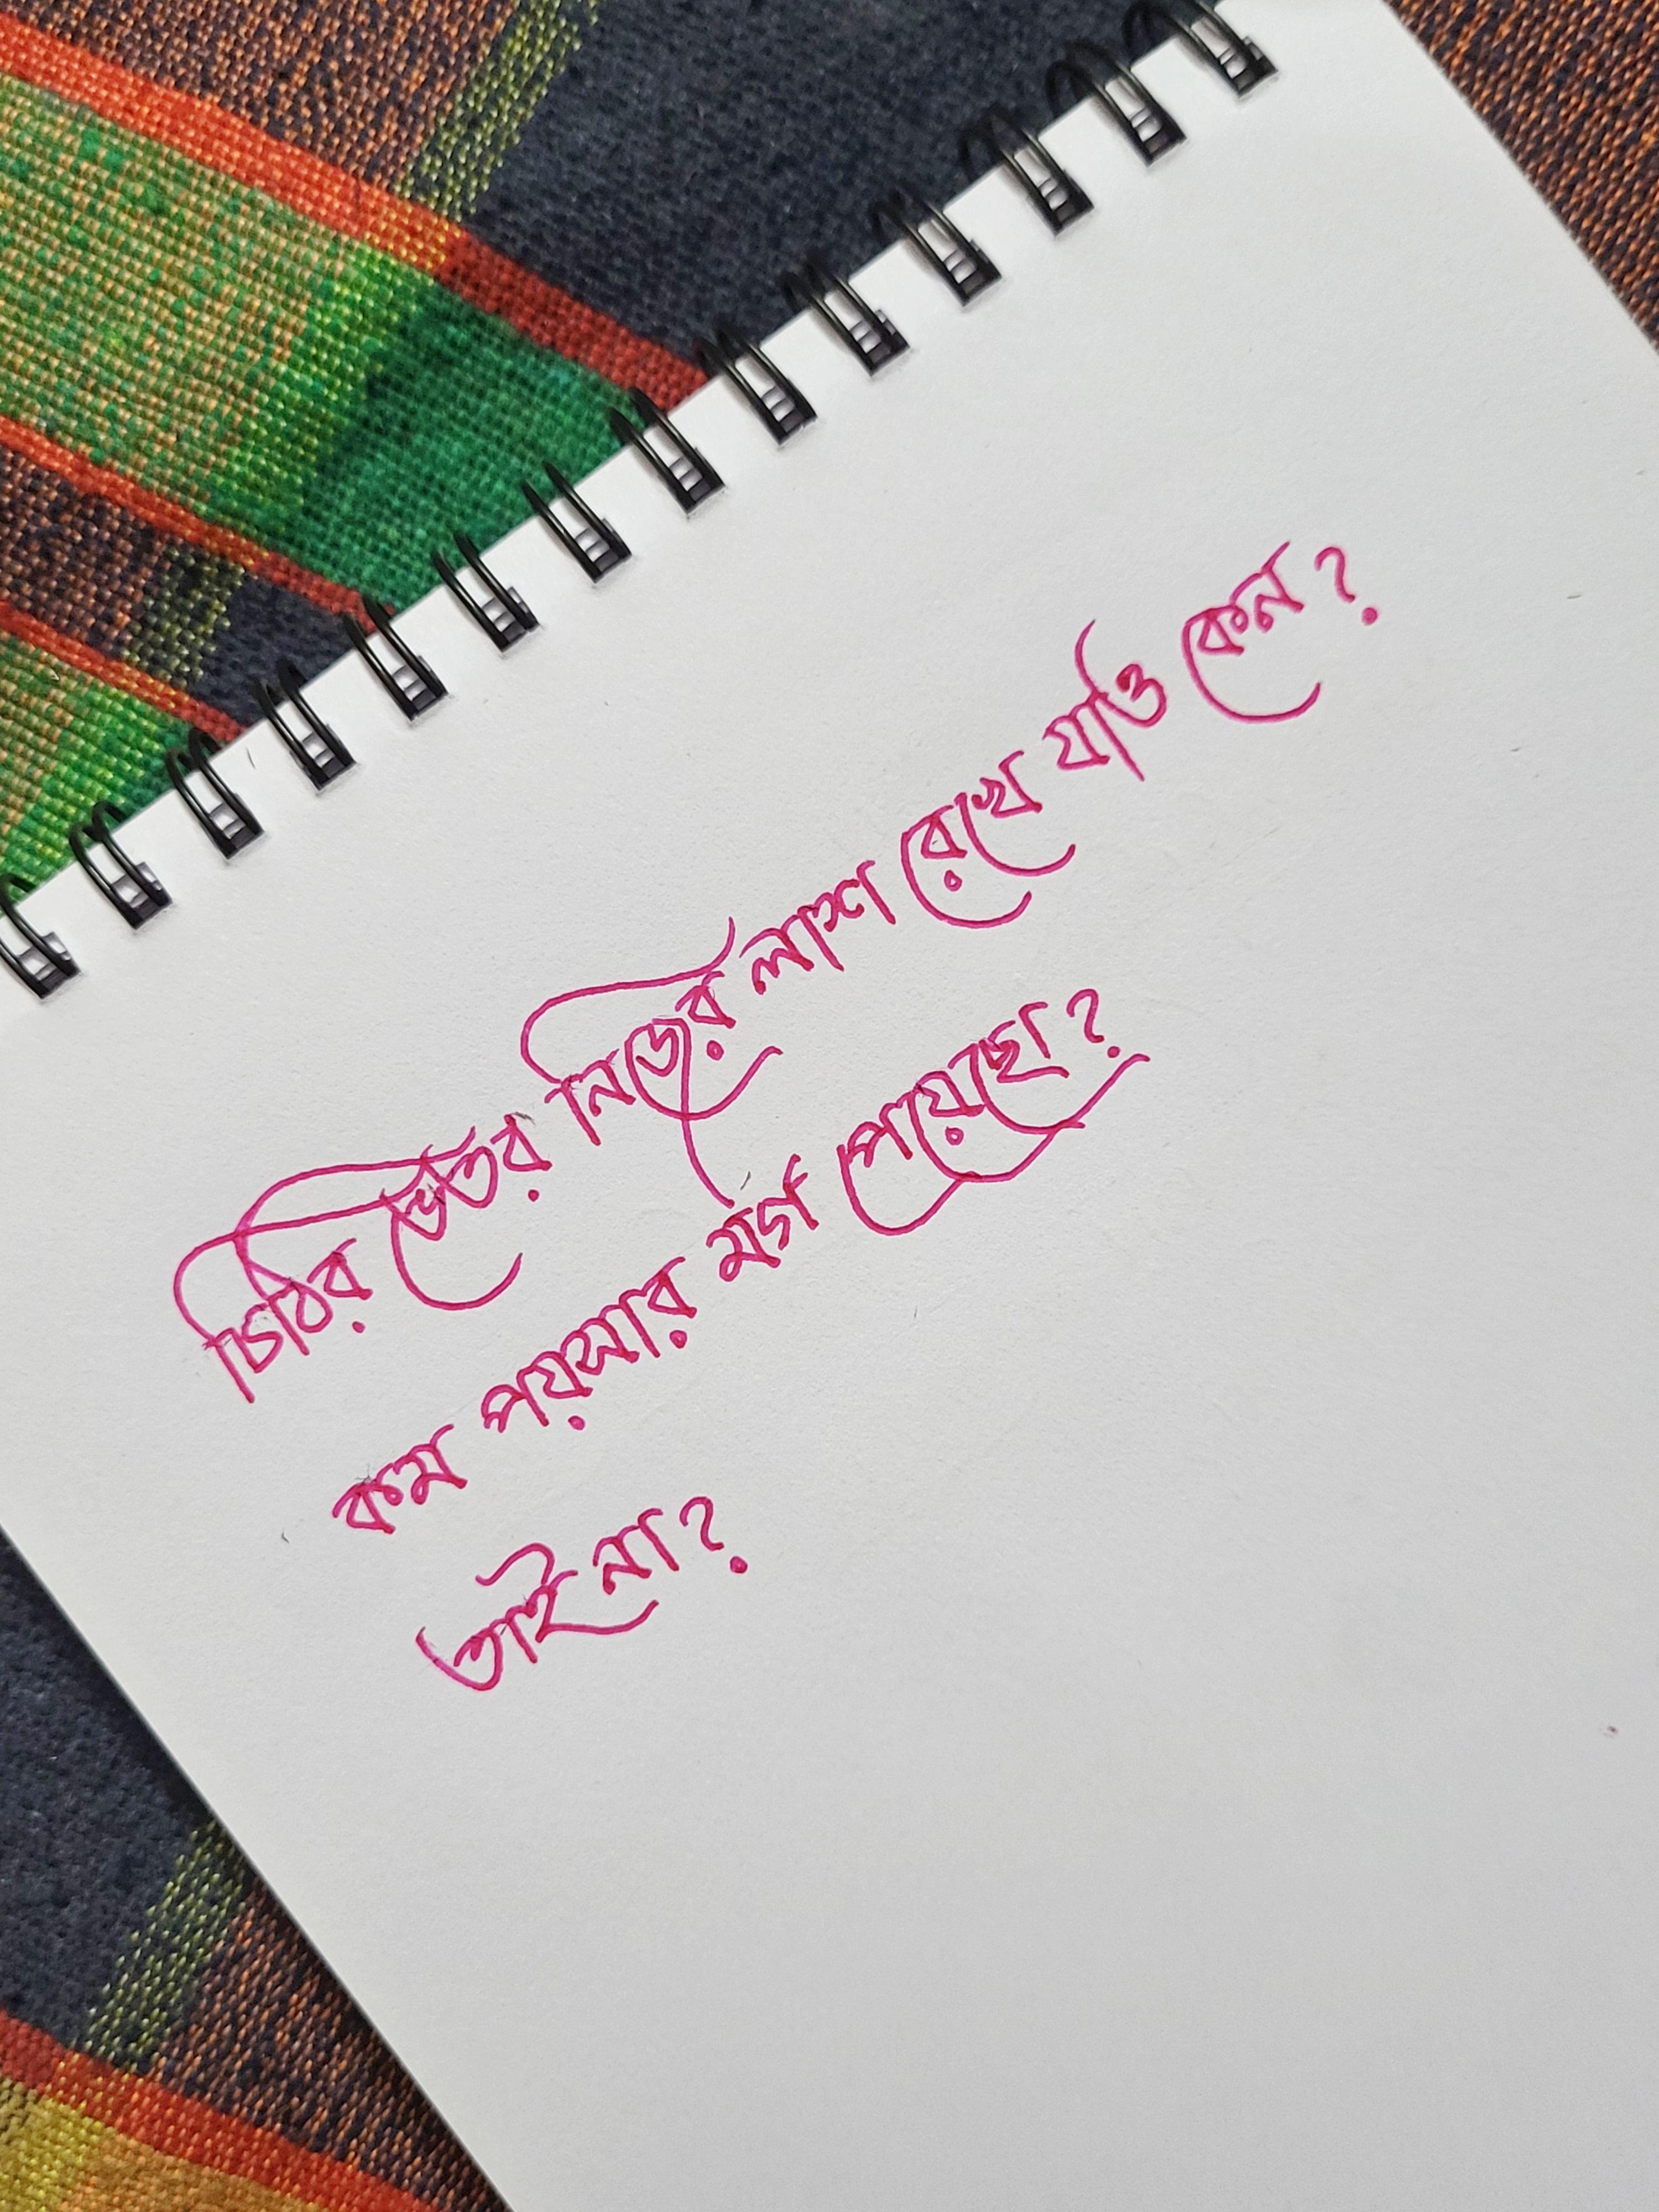 চিঠির ভেতর নিজের লাশ রেখে যাও কেন?
কম পয়সার মর্গ পেয়েছো?
তাই না?